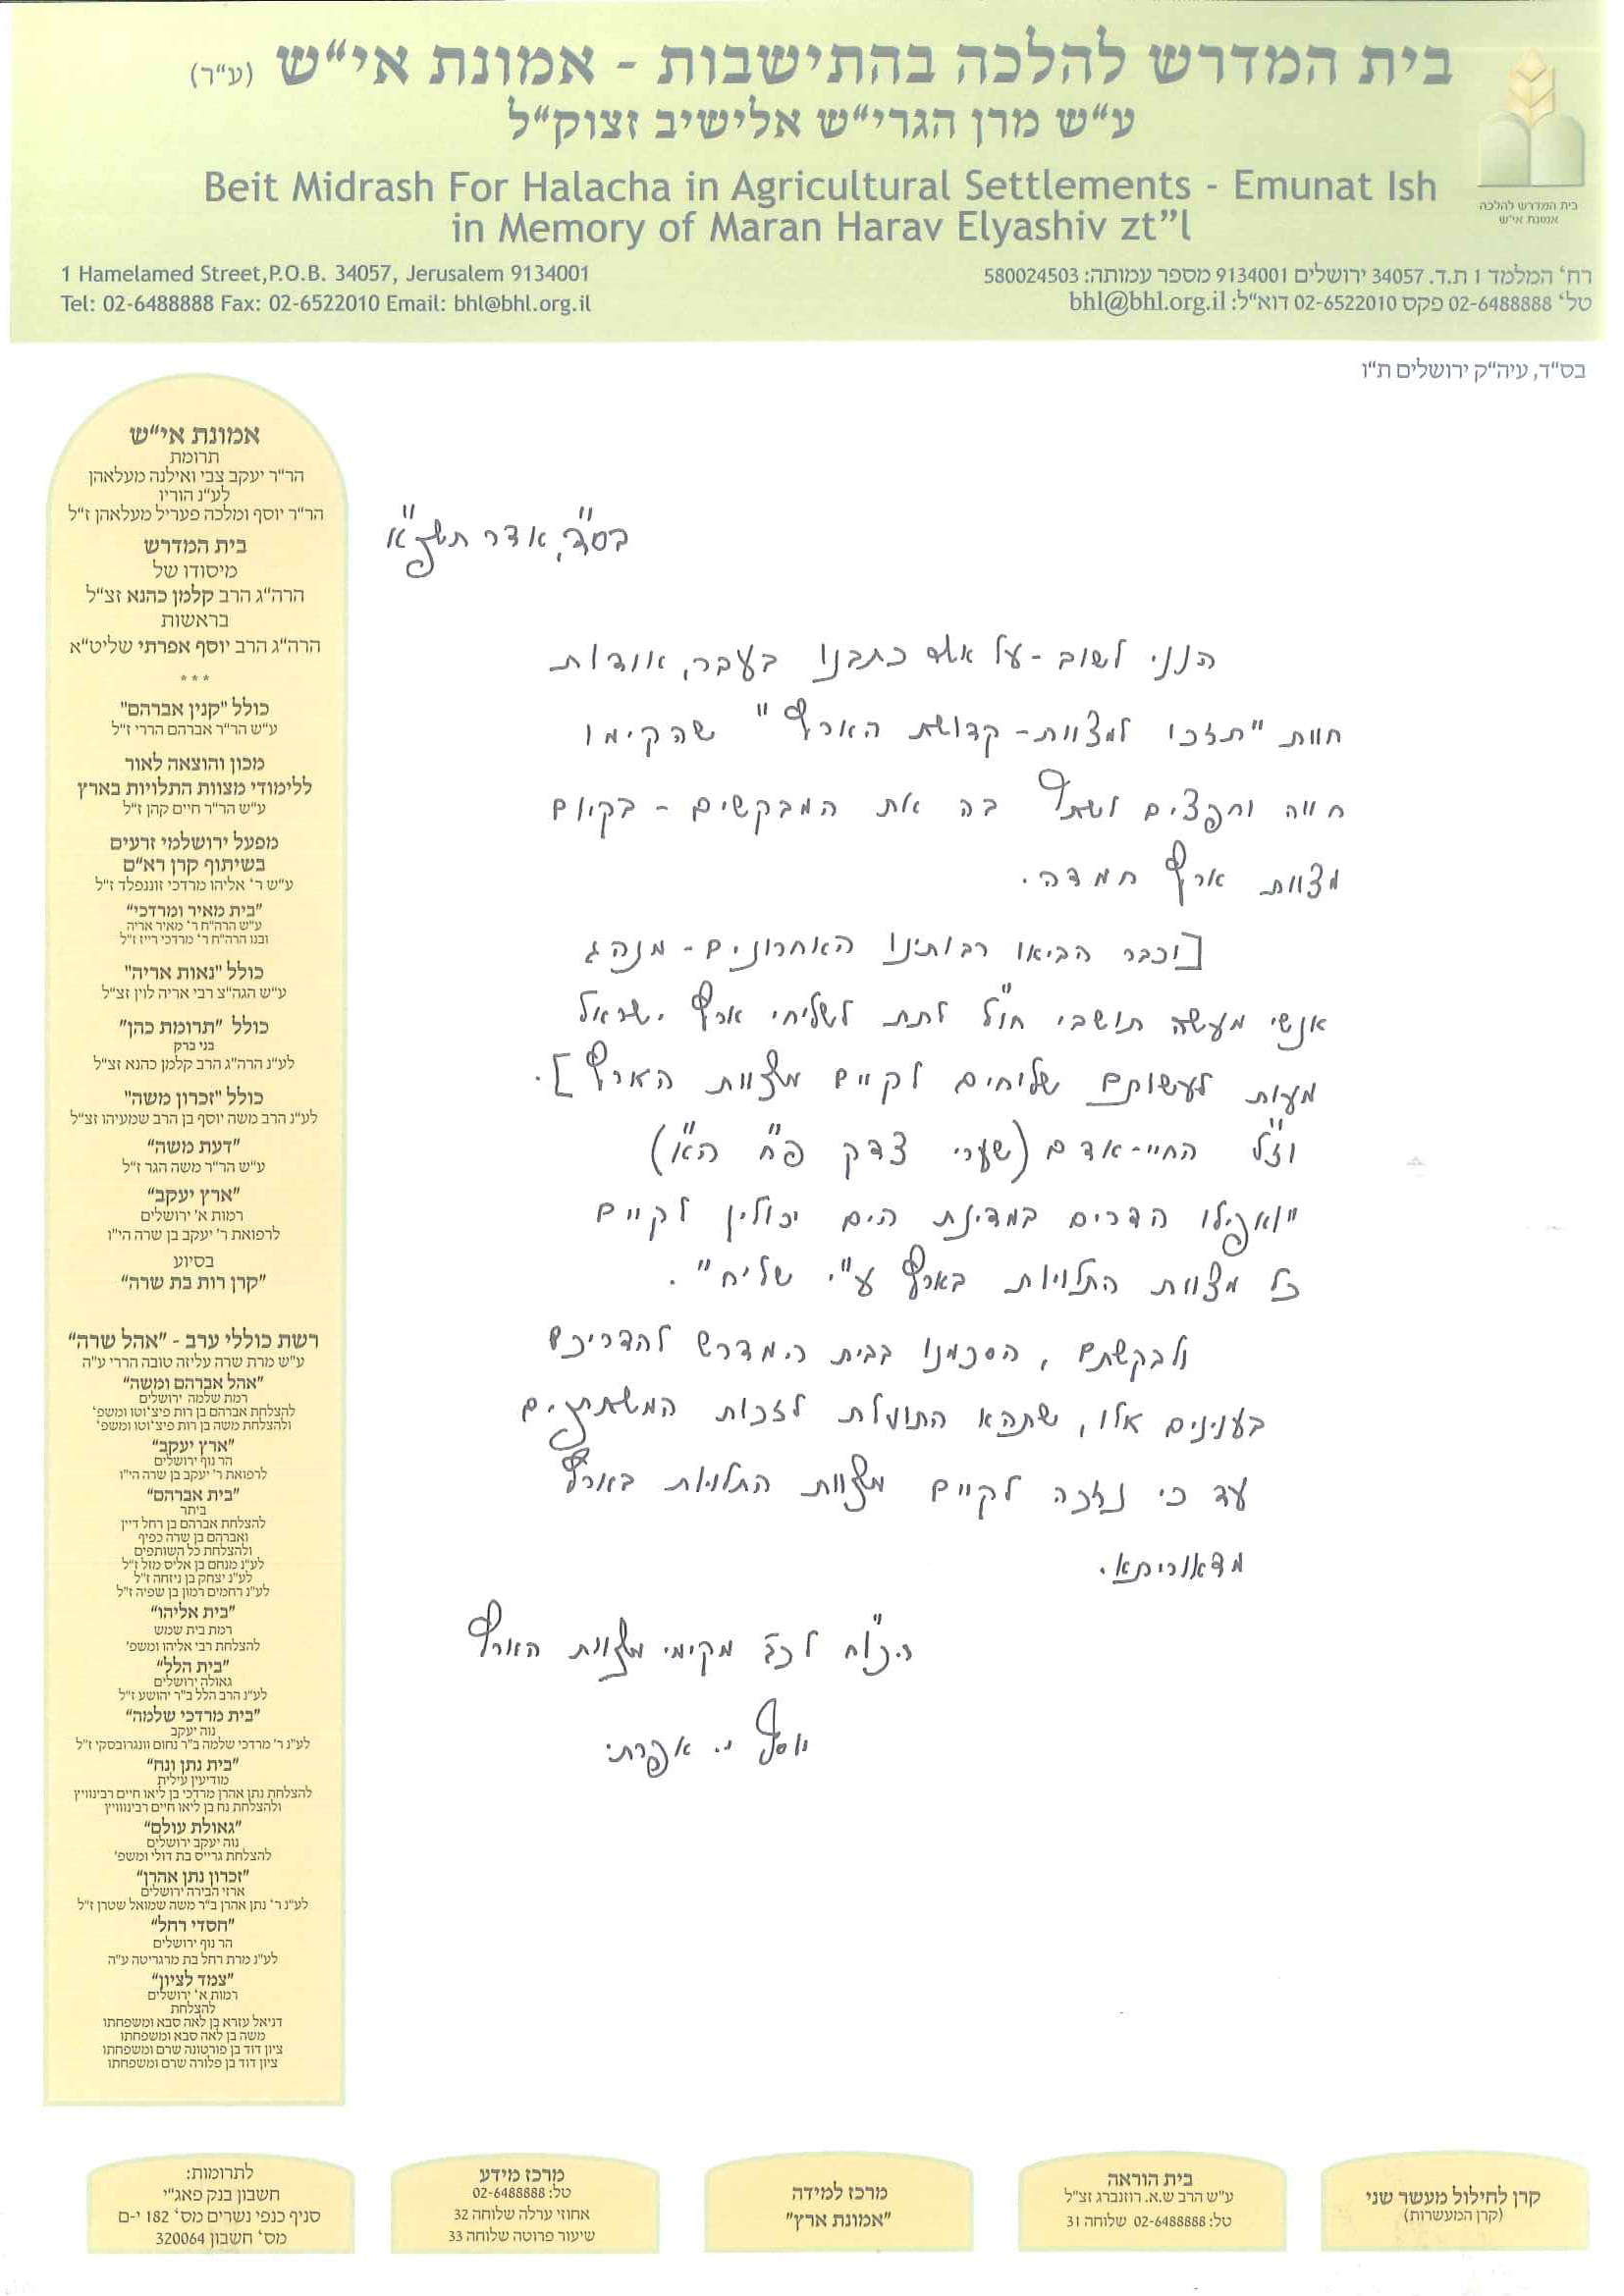 בית המדרש להלכה בהתישבות - אמונת אי״ש (ע״ר)
ע״ש מרן הגרי״ש אלישיב זצוק״ל
Beit Midrash For Halacha in Agricultural Settlements - Emunat Ish
in Memory of Maran Harav Elyashiv zt”l
בית המדרש להלכה
אמונת אי״ש
1 Hamelamed Street,P.O.B. 34057, Jerusalem 9134001
Tel: 02-6488888 Fax: 02-6522010 Email: bhl@bhl.org.il
רח׳ המלמד 1 ת.ד. 34057 ירושלים 9134001 מספר עמותה: 580024503
טל׳ 02-6488888 פקס 02-6522010 דוא״ל: bhl@bhl.org.il
בס״ד, עיה״ק ירושלים ת״ו
בס״ד, אדר תשפ״א
הנני לשוב - על אשר כתבנו בעבר, אודות
חוות "תזכו למצוות - קדושת הארץ" שהקימו
חווה וחפצים לשתף בה את המבקשים - בקיום
מצוות ארץ חמדה.
[וכבר הביאו רבותינו האחרונים - מנהג
אנשי מעשה תושבי חו״ל לתת לשליחי ארץ ישראל
מעות לעשותם שלוחים לקיים מצוות הארץ].
וז״ל החיי-אדם (שערי צדק פ״ח ה״א)
"ואפילו הדרים במדינת הים יכולין לקיים
כל מצוות התלויות בארץ ע"י שליח".
ולבקשתם, הסכמנו בבית המדרש להדריכם
בענינים אלו, שתהא התועלת לזכות המשתתפים
עד כי נזכה לקיים מצוות התלויות בארץ
מדאוריתא.
הכו״ח לכב׳ מקימי מצוות הארץ
יוסף י. אפרתי
אמונת אי״ש
תרומת
הר״ר יעקב צבי ואילנה מעלאהן
לע״נ הוריו
הר״ר יוסף ומלכה פעריל מעלאהן ז״ל
בית המדרש
מיסודו של
הרה״ג הרב קלמן כהנא זצ״ל
בראשות
הרה״ג הרב יוסף אפרתי שליט״א
***
כולל "קנין אברהם"
ע״ש הר״ר אברהם הררי ז״ל
מכון והוצאה לאור
ללימודי מצוות התלויות בארץ
ע״ש הר״ר חיים קהן ז״ל
מפעל ירושלמי זרעים
בשיתוף קרן רא״ם
ע״ש ר׳ אליהו מרדכי זוננפלד ז״ל
"בית מאיר ומרדכי"
ע״ש הרה״ח ר׳ מאיר אריה
ובנו הרה״ח ר׳ מרדכי רייז ז״ל
כולל "נאות אריה"
ע״ש הגה״צ רבי אריה לוין זצ״ל
כולל "תרומת כהן"
בני ברק
לע״נ הרה״ג הרב קלמן כהנא זצ״ל
כולל "זכרון משה"
לע״נ הרב משה יוסף בן הרב שמעיהו זצ״ל
"דעת משה"
ע״ש הר״ר משה הגר ז״ל
"ארץ יעקב"
רמות א׳ ירושלים
לרפואת ר׳ יעקב בן שרה הי״ו
בסיוע
"קרן רות בת שרה"
רשת כוללי ערב - "אהל שרה"
ע״ש מרת שרה עליזה טובה הררי ע״ה
"אהל אברהם ומשה"
רמת שלמה ירושלים
להצלחת אברהם בן רות פיצ׳וטו ומשפ׳
ולהצלחת משה בן רות פיצ׳וטו ומשפ׳
"ארץ יעקב"
הר נוף ירושלים
לרפואת ר׳ יעקב בן שרה הי״ו
"בית אברהם"
ביתר
להצלחת אברהם בן רחל דיין
ואברהם בן שרה כפיף
ולהצלחת כל השותפים
לע״נ מנחם בן אליס מזל ז״ל
לע״נ יצחק בן ניזחה ז״ל
לע״נ רחמים רמון בן שפיה ז״ל
"בית אליהו"
רמת בית שמש
להצלחת רבי אליהו ומשפ׳
"בית הלל"
גאולה ירושלים
לע״נ הרב הלל ב״ר יהושע ז״ל
"בית מרדכי שלמה"
נוה יעקב
לע״נ ר׳ מרדכי שלמה ב״ר נחום וונגרובסקי ז״ל
"בית נתן ונח"
מודיעין עילית
להצלחת נתן אהרן מרדכי בן ליאו חיים רבינוויץ
ולהצלחת נח בן ליאו חיים רבינוויץ
"גאולת עולם"
נוה יעקב ירושלים
להצלחת גרייס בת דולי ומשפ׳
"זכרון נתן אהרן"
ארזי הבירה ירושלים
לע״נ ר׳ נתן אהרן ב״ר משה שמואל שטרן ז״ל
"חסדי רחל"
הר נוף ירושלים
לע״נ מרת רחל בת מרגריטה ע״ה
"צמד לציון"
רמות א׳ ירושלים
להצלחת
דניאל עזרא בן לאה סבא ומשפחתו
משה בן לאה סבא ומשפחתו
ציון דוד בן פורטונה שרם ומשפחתו
ציון דוד בן פלורה שרם ומשפחתו
קרן לחילול מעשר שני
(קרן המעשרות)
בית הוראה
ע״ש הרב ש.א. רוזנברג זצ״ל
טל: 02-6488888 שלוחה 31
מרכז למידה
"אמונת ארץ"
מרכז מידע
טל: 02-6488888
אחוזי ערלה שלוחה 32
שיעור פרוטה שלוחה 33
לתרומות:
חשבון בנק פאג״י
סניף כנפי נשרים מס׳ 182 י-ם
מס׳ חשבון 320064